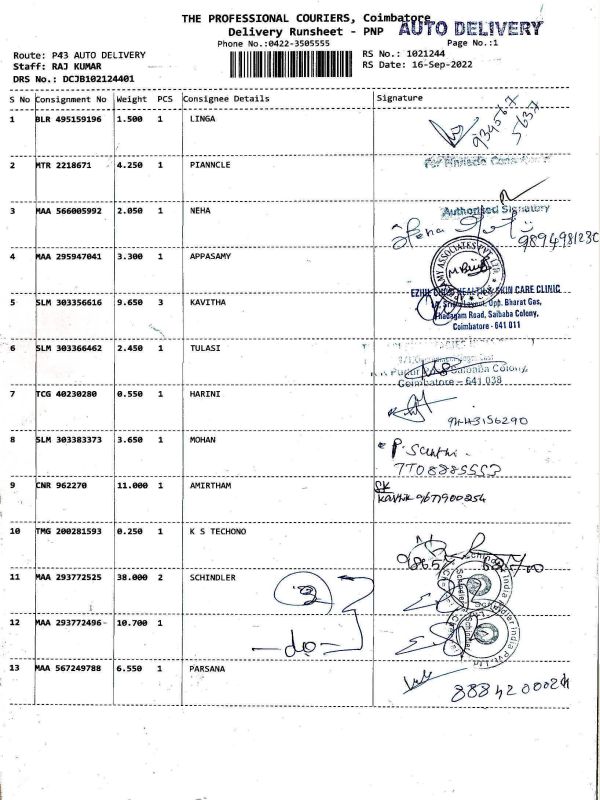 THE PROFESSIONAL COURIERS, Coimbatore
AUTO DELIVERY
Delivery Runsheet - PNP
Phone No.:0422-3505555
Page No.:1
Route: P43 AUTO DELIVERY
RS No.: 1021244
Staff: RAJ KUMAR
RS Date: 16-Sep-2022
DRS No.: DCJB102124401
S No Consignment No Weight PCS Consignee Details Signature
1 BLR 495159196 1.500 1 LINGA
934567
5637
2 MTR 2218671 4.250 1 PIANNCLE
For Pinnacle
3 MAA 566005992 2.050 1 NEHA
Authorised Signatory
9894981230
4 MAA 295947041 3.300 1 APPASAMY
AMY ASSOCIATES PVT. LTD.
5 SLM 303356616 9.650 3 KAVITHA
SKIN CARE CLINIC
Opp. Bharat Gas,
Thadagam Road, Saibaba Colony,
Coimbatore - 641 011
6 SLM 303366462 2.450 1 TULASI
Saibaba Colony,
Coimbatore - 641 038
7 TCG 40230280 0.550 1 HARINI
9443156290
8 SLM 303383373 3.650 1 MOHAN
P. Santhi
7708885553
9 CNR 962270 11.000 1 AMIRTHAM
SK
Karthik 9677900254
10 TMG 200281593 0.250 1 K S TECHONO
11 MAA 293772525 38.000 2 SCHINDLER
2
Schindler India Pvt. Ltd.
12 MAA 293772496 10.700 1
-do-
Schindler India Pvt. Ltd.
13 MAA 567249788 6.550 1 PARSANA
8884200024